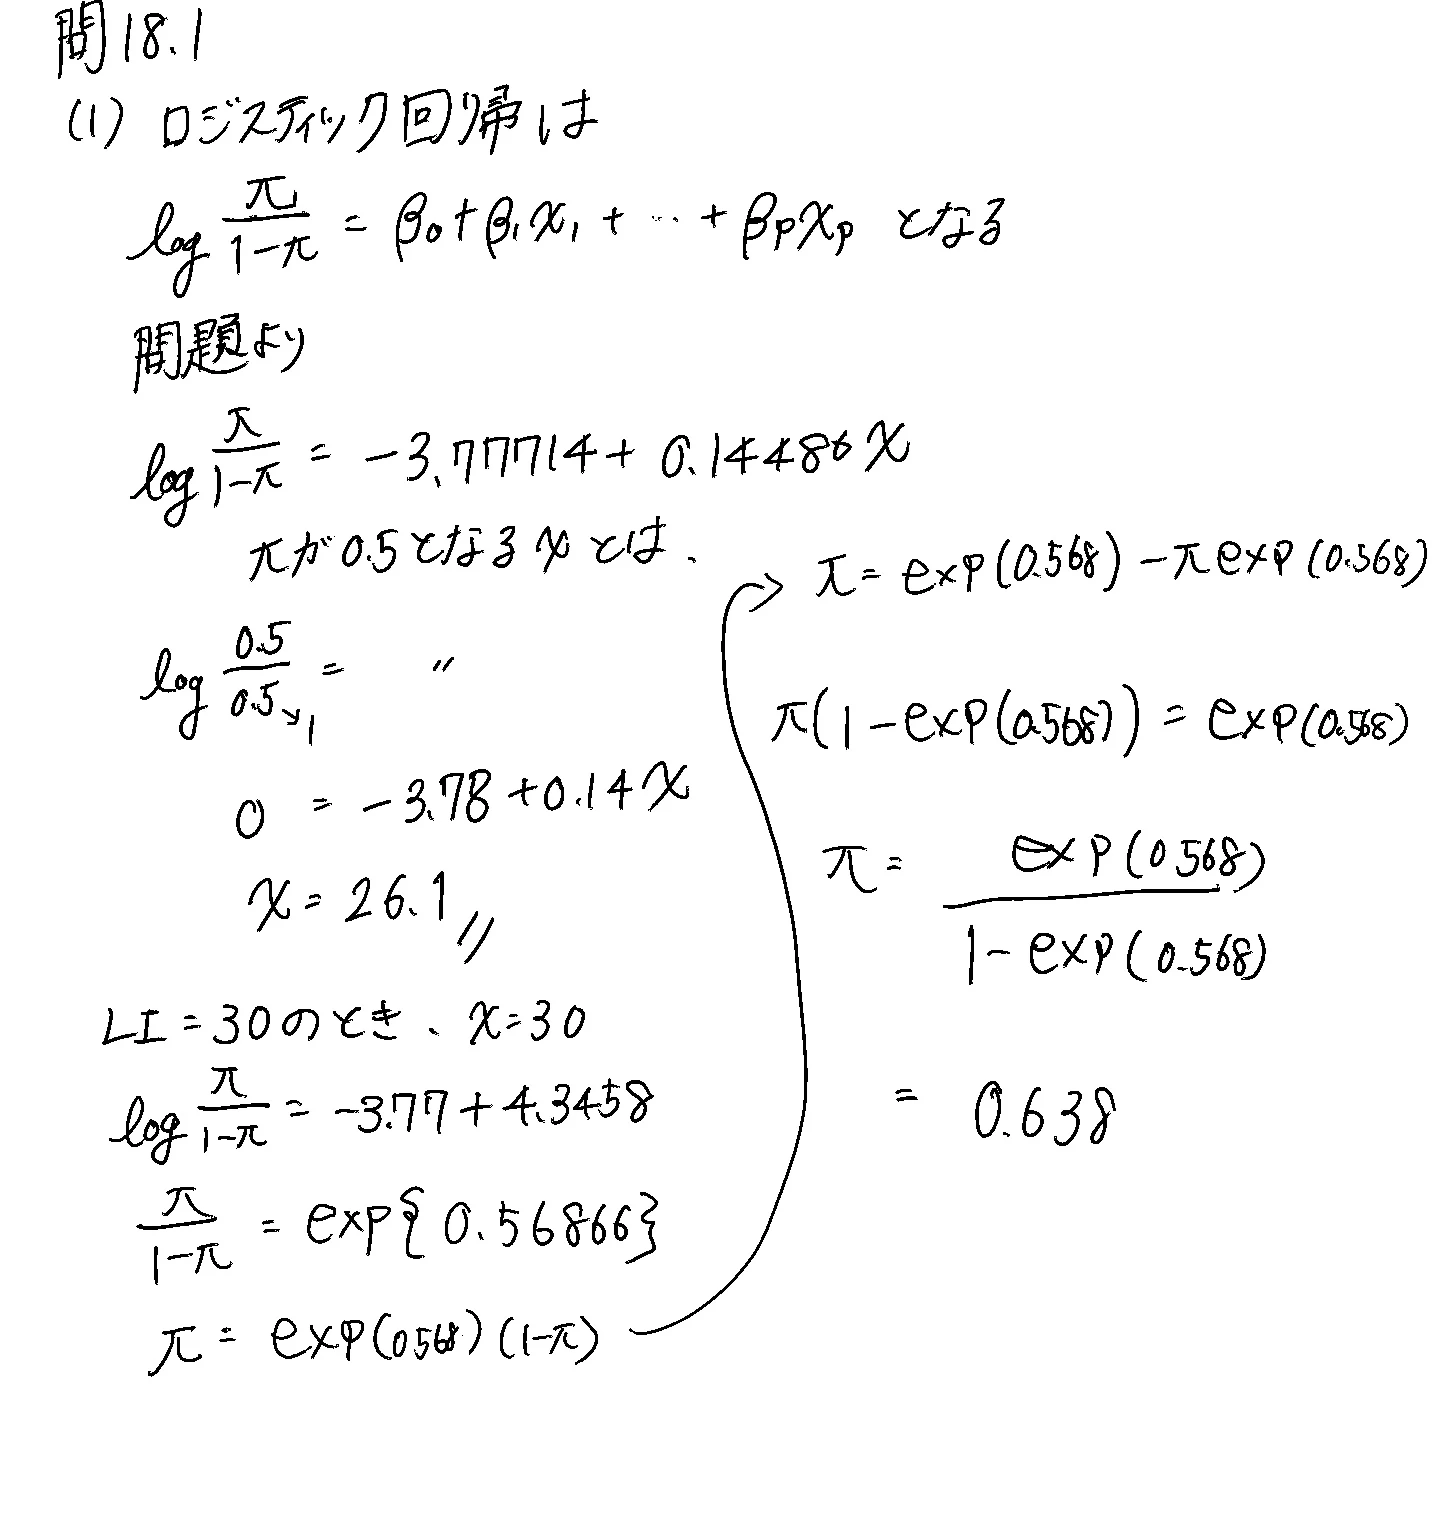 問18.1
(1) ロジスティック回帰は
log π/(1-π) = β₀+β₁x₁ + … + βpxp となる
問題より
log π/(1-π) = -3.77714+ 0.14486x
πが0.5となるxとは、
log 0.5/0.5 ↘1 = 〃
0 = -3.78+0.14x
x= 26.1 //
LI=30のとき、x=30
log π/(1-π) = -3.77+4.3458
π/(1-π) = exp{0.56866}
π= exp(0.568)(1-π)
→ π= exp(0.568)-πexp(0.568)
π(1-exp(0.568)) = exp(0.568)
π= exp(0.568)/(1-exp(0.568))
= 0.638